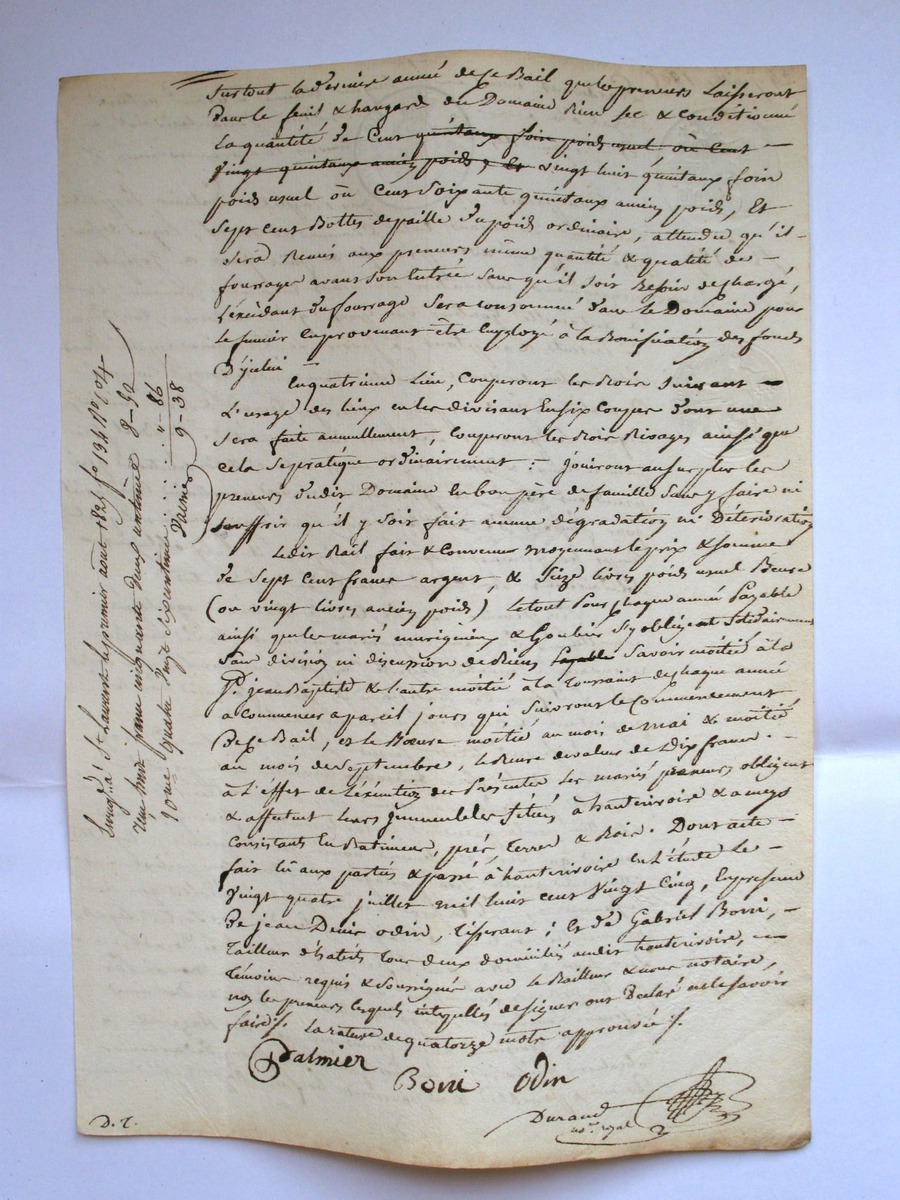 Surtout la derniere année de ce Bail que les preneurs Laisseront
Dans le fenil & hangard du Domaine Bien sec & Conditionné
La quantité de Cent quintaux foin poids usuel ou cent
Vingt quintaux ancien poids, Et vingt huit quintaux foin
poids usuel ou Cent Soixante quintaux ancien poids, Et
Sept Cent Bottes de paille du poids ordinaire, attendu qu'il
Sera Remis aux preneurs même quantité & qualité de
fourrages avant son Entrée Sans qu'il soit Besoin de charge,
L'excédant du fourrage Sera consommé dans le Domaine pour
le fumier en provenant être Employé à la Bonification des fonds
D'ycelui
En quatrieme Lieu, Couperont les Bois Suivant
L'usage des lieux en les divisant En six Coupes dont une
Sera faite annuellement, Couperont les Bois Rivages ainsi que
cela se pratique ordinairement : Jouiront au surplus les
preneurs dudit Domaine En bon père de famille Sans y faire ni
Souffrir qu'il y soit fait aucune dégradation ni Détérioration
Ledit Bail fait & Convenu moyennant le prix & Somme
De Sept Cent francs argent, & Seize livres poids usuel Beurre
(ou vingt livres ancien poids) Le tout Pour chaque année Payable
ainsi que les mariés & Goubier S'y obligent Solidairement
Sans division ni discussion de Biens Payable Savoir moitié à la
St. jean Baptiste & l'autre moitié à la Toussaint de chaque année
a Commencer a pareil jours qui Suivront le Commencement
De ce Bail, et le Beurre moitié au mois de mai & moitié
au mois de Septembre, le Beurre de valeur de Dix francs.
à L'effet de L'exécution des Présentes les mariés preneurs obligent
& affectent leurs Immeubles situés à hauterivoire & a meys
Consistants En Batiments, prés Terres & Bois. Dont acte
fait lu aux parties & passé à hauterivoire En L'étude Le
Vingt quatre juillet mil huit cent Vingt Cinq, En présence
De jean Denis odin, tisserant ; Et de Gabriel Boni,
Tailleur d'habits tous deux domiciliés audit hauterivoire,
témoins requis & Soussignés avec le Bailleur & nous notaire,
non les preneurs lesquels interpellés de signer ont Déclaré ne le Savoir
faire /. La rature de quatorze mots approuvée /.
Palmier
Boni Odin
Durand
not. royal
D. T.
Enreg. à St Laurent le premier aout 1825 fo 194 Ro C 4
Reçu huit francs cinquante deux centimes 8-52
10me quatre vingt six centimes " - 86
9-38